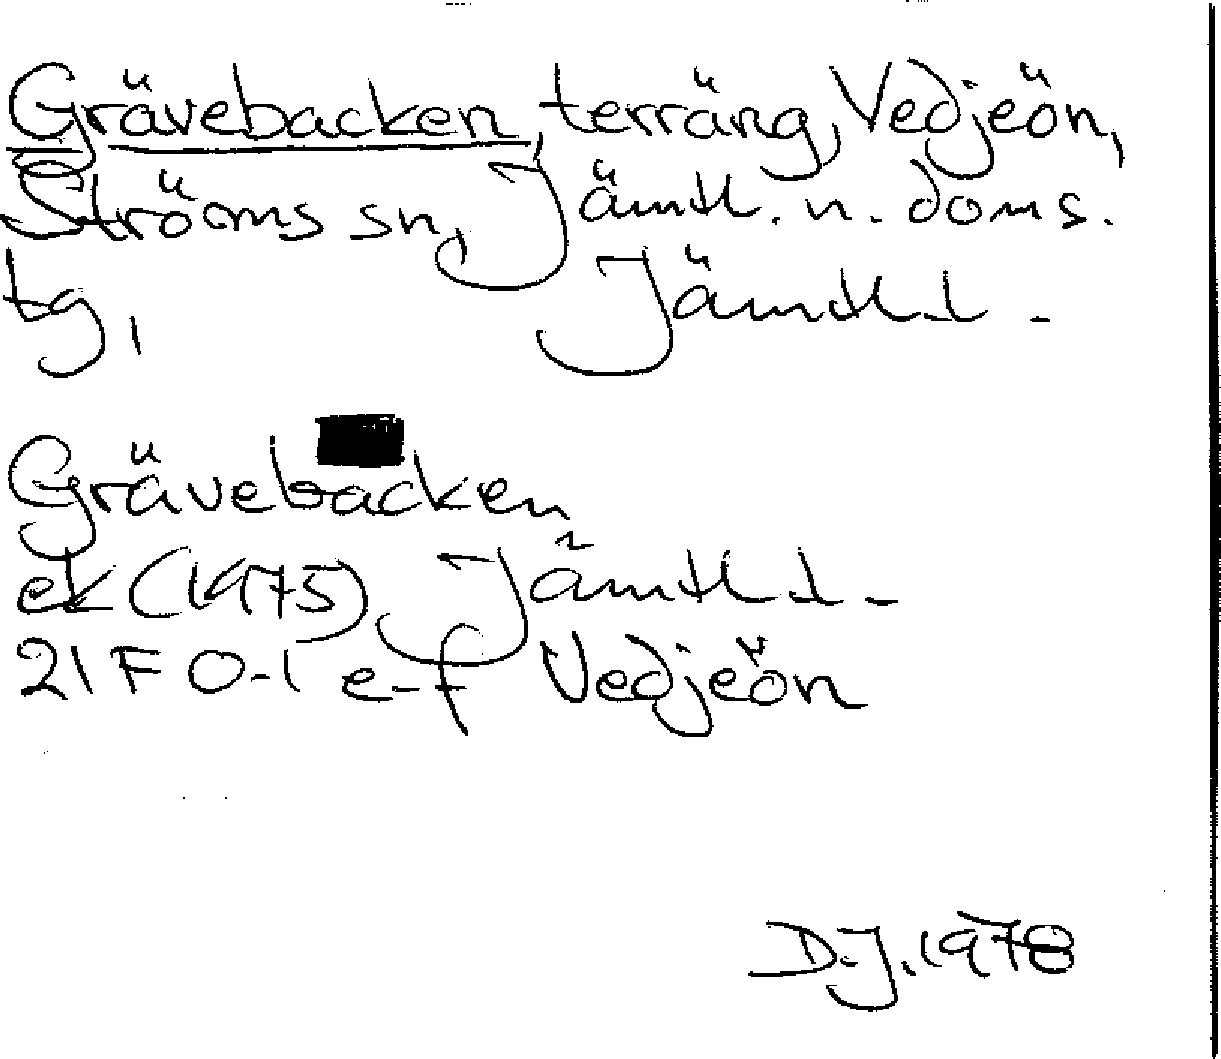 Grävebacken, terräng, Vedjeön,
Ströms sn, Jämtl. n. doms.
tg, Jämtl. l.
Grävebacken
ek (1975) Jämtl. l.
21 F 0-1 e-f Vedjeön
D.J. 1978